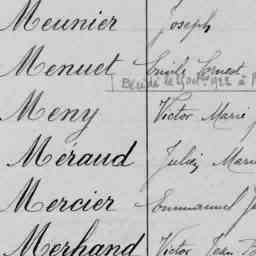 Meunier Joseph
Menuet Emile Ernest
Décédé le 1922 à
Meny Victor Marie
Méraud Julien Marie
Mercier Emmanuel
Merhand Victor Jean